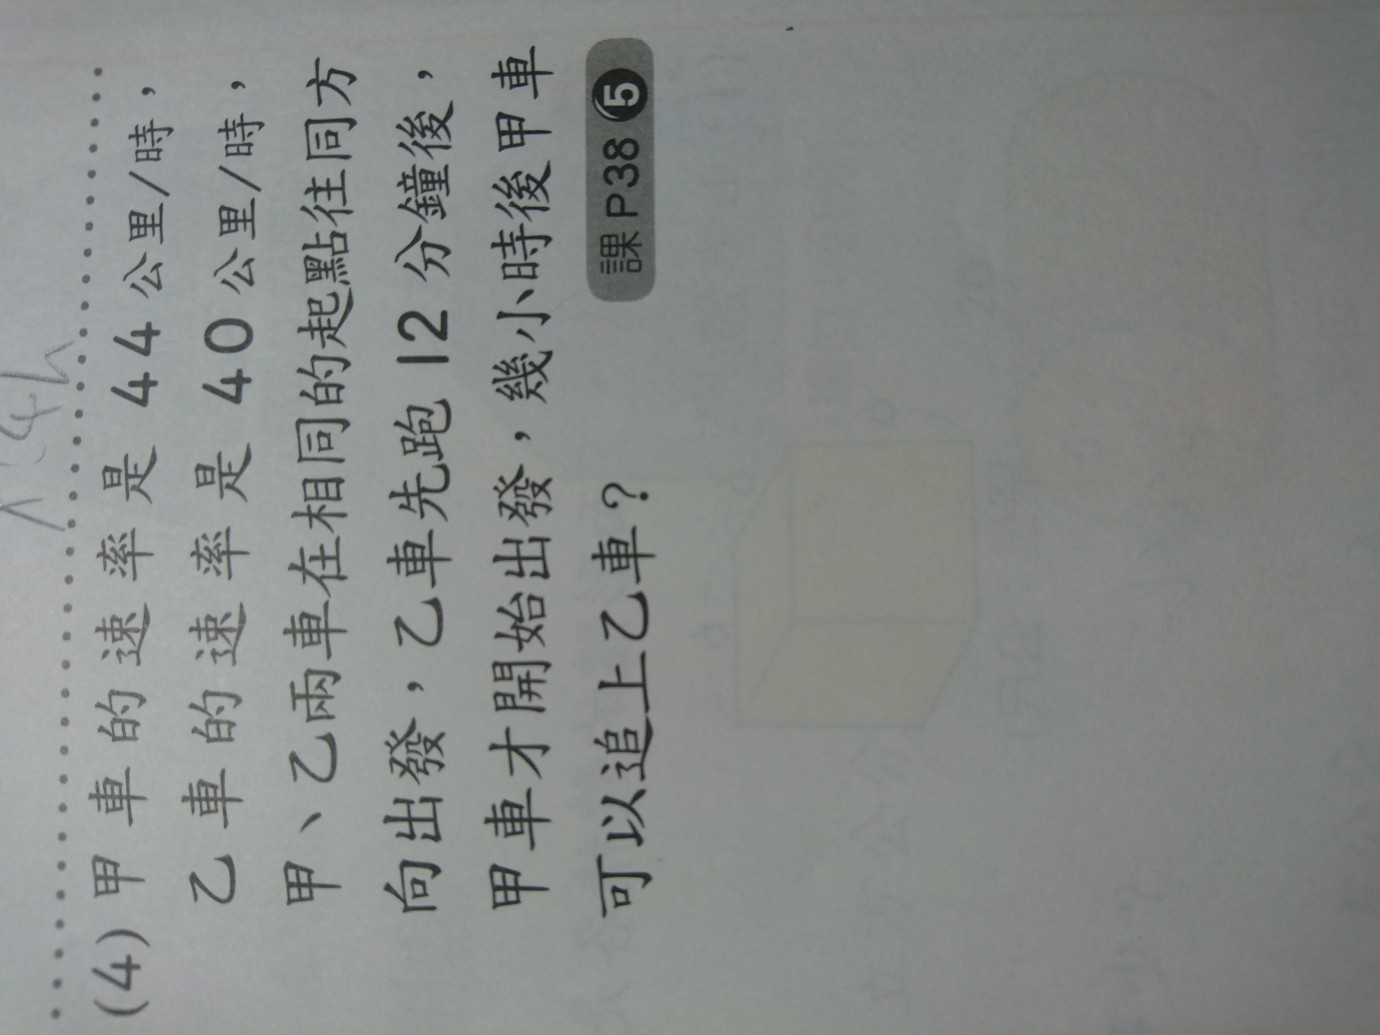 (4) 甲車的速率是 44 公里/時，
乙車的速率是 40 公里/時，
甲、乙兩車在相同的起點往同方
向出發，乙車先跑 12 分鐘後，
甲車才開始出發，幾小時後甲車
可以追上乙車？
課 P38 5